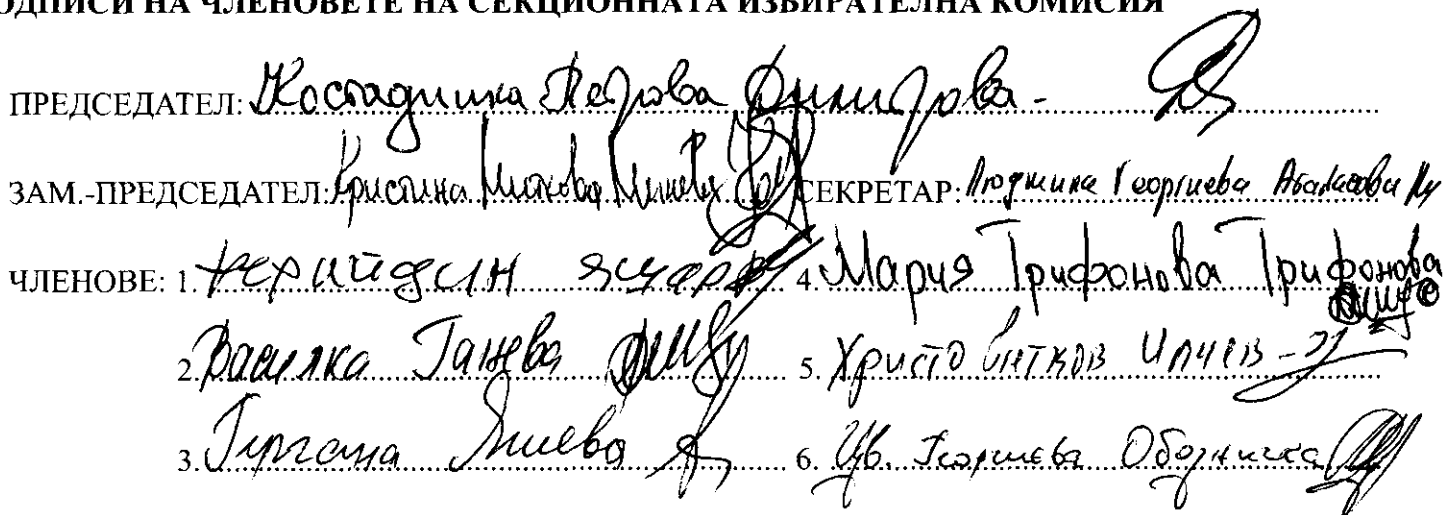 ОДПИСИ НА ЧЛЕНОВЕТЕ НА СЕКЦИОННАТА ИЗБИРАТЕЛНА КОМИСИЯ
ПРЕДСЕДАТЕЛ: Костадинка Петрова Димитрова -
ЗАМ.-ПРЕДСЕДАТЕЛ: Кристина Миткова СЕКРЕТАР: Людмила Георгиева
ЧЛЕНОВЕ: 1. 4. Мария Трифонова Трифонова
2. Василка Ганева 5. Христо Илчев
3. Гергана 6. Цв. Георгиева